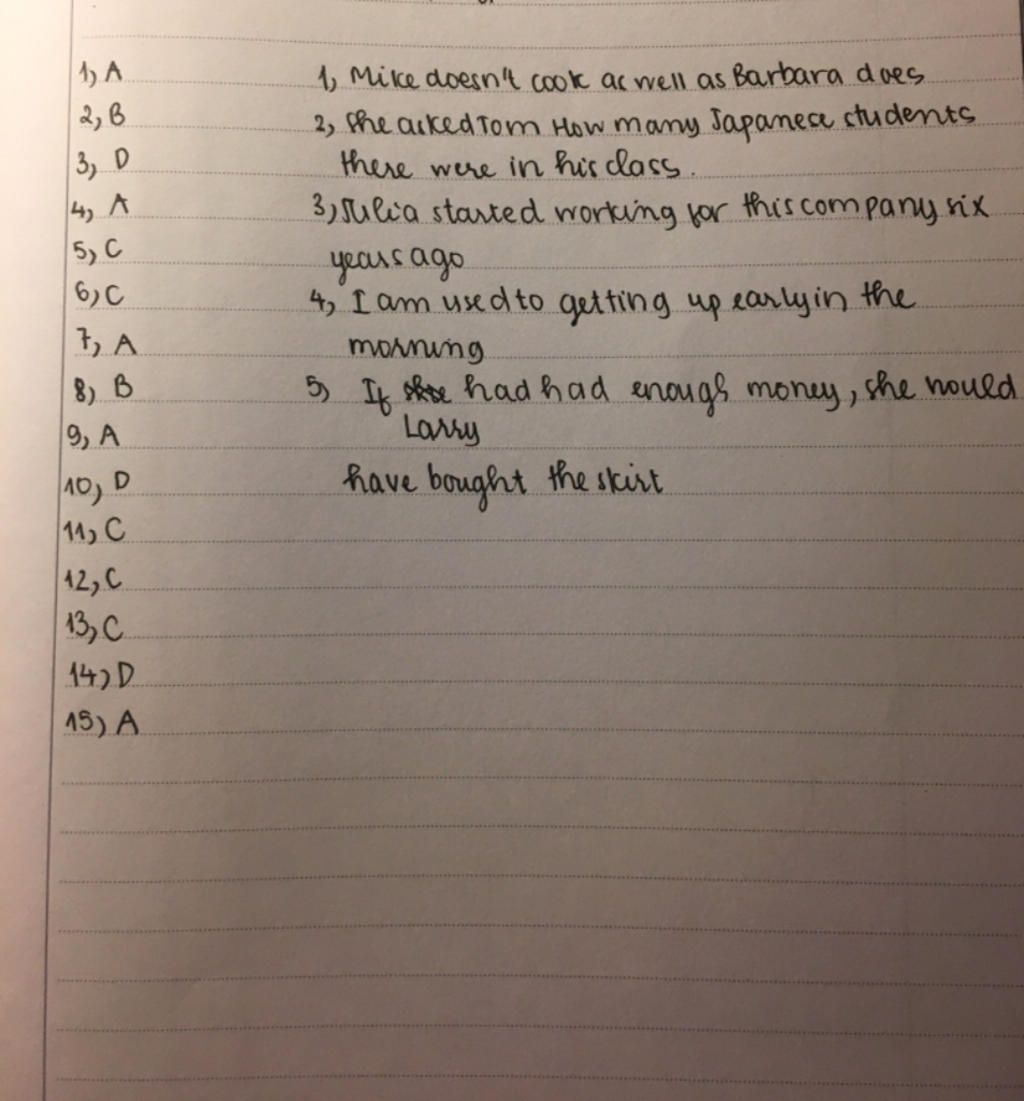 1, A
2, B
3, D
4, A
5, C
6, C
7, A
8, B
9, A
10, D
11, C
12, C
13, C
14, D
15, A
1, Mike doesn't cook as well as Barbara does
2, She asked Tom How many Japanese students
there were in his class.
3, Julia started working for this company six
years ago
4, I am used to getting up early in the
morning
5, If had had enough money, she would
Larry
have bought the skirt